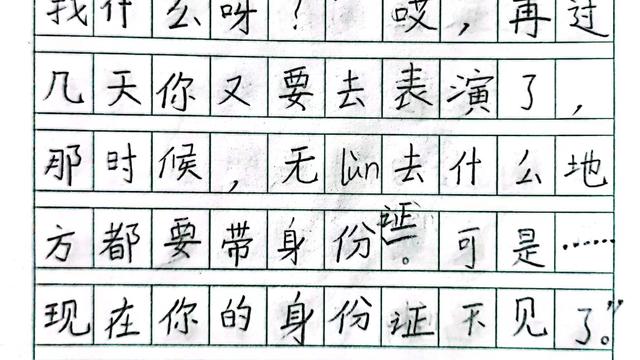 我什么呀？”哎，再过
几天你又要去表演了，
那时候，无lùn去什么地
方都要带身份证。可是……
现在你的身份证不见了。”